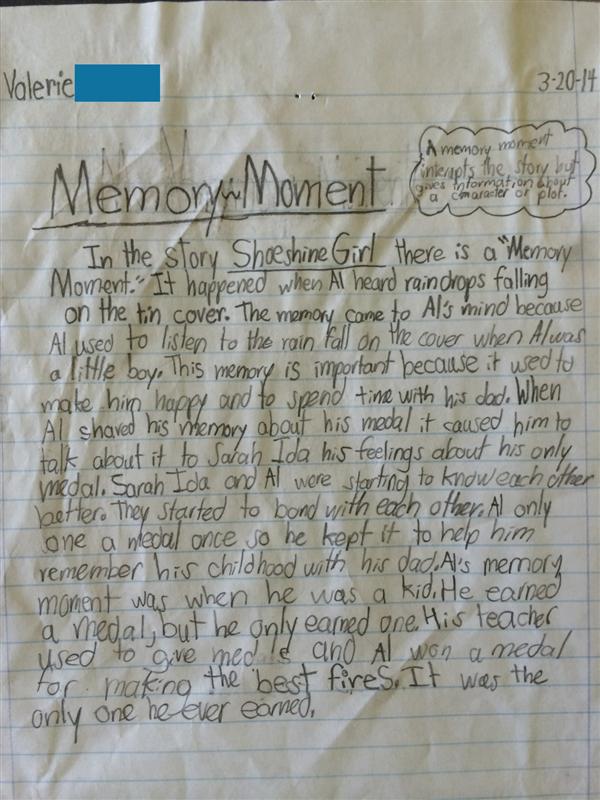 Valerie
3-20-14
A memory moment
interupts the story but
gives information about
a character or plot.
Memory~Moment
In the story Shoeshine Girl there is a "Memory
Moment." It happened when Al heard raindrops falling
on the tin cover. The memory came to Al's mind because
Al used to listen to the rain fall on the cover when Al was
a little boy. This memory is important because it used to
make him happy and to spend time with his dad. When
Al shaved his memory about his medal it caused him to
talk about it to Sarah Ida his feelings about his only
medal. Sarah Ida and Al were starting to know each other
better. They started to bond with each other. Al only
one a medal once so he kept it to help him
remember his childhood with his dad. Al's memory
moment was when he was a kid. He earned
a medal, but he only earned one. His teacher
used to give medals and Al won a medal
for making the best fires. It was the
only one he ever earned.